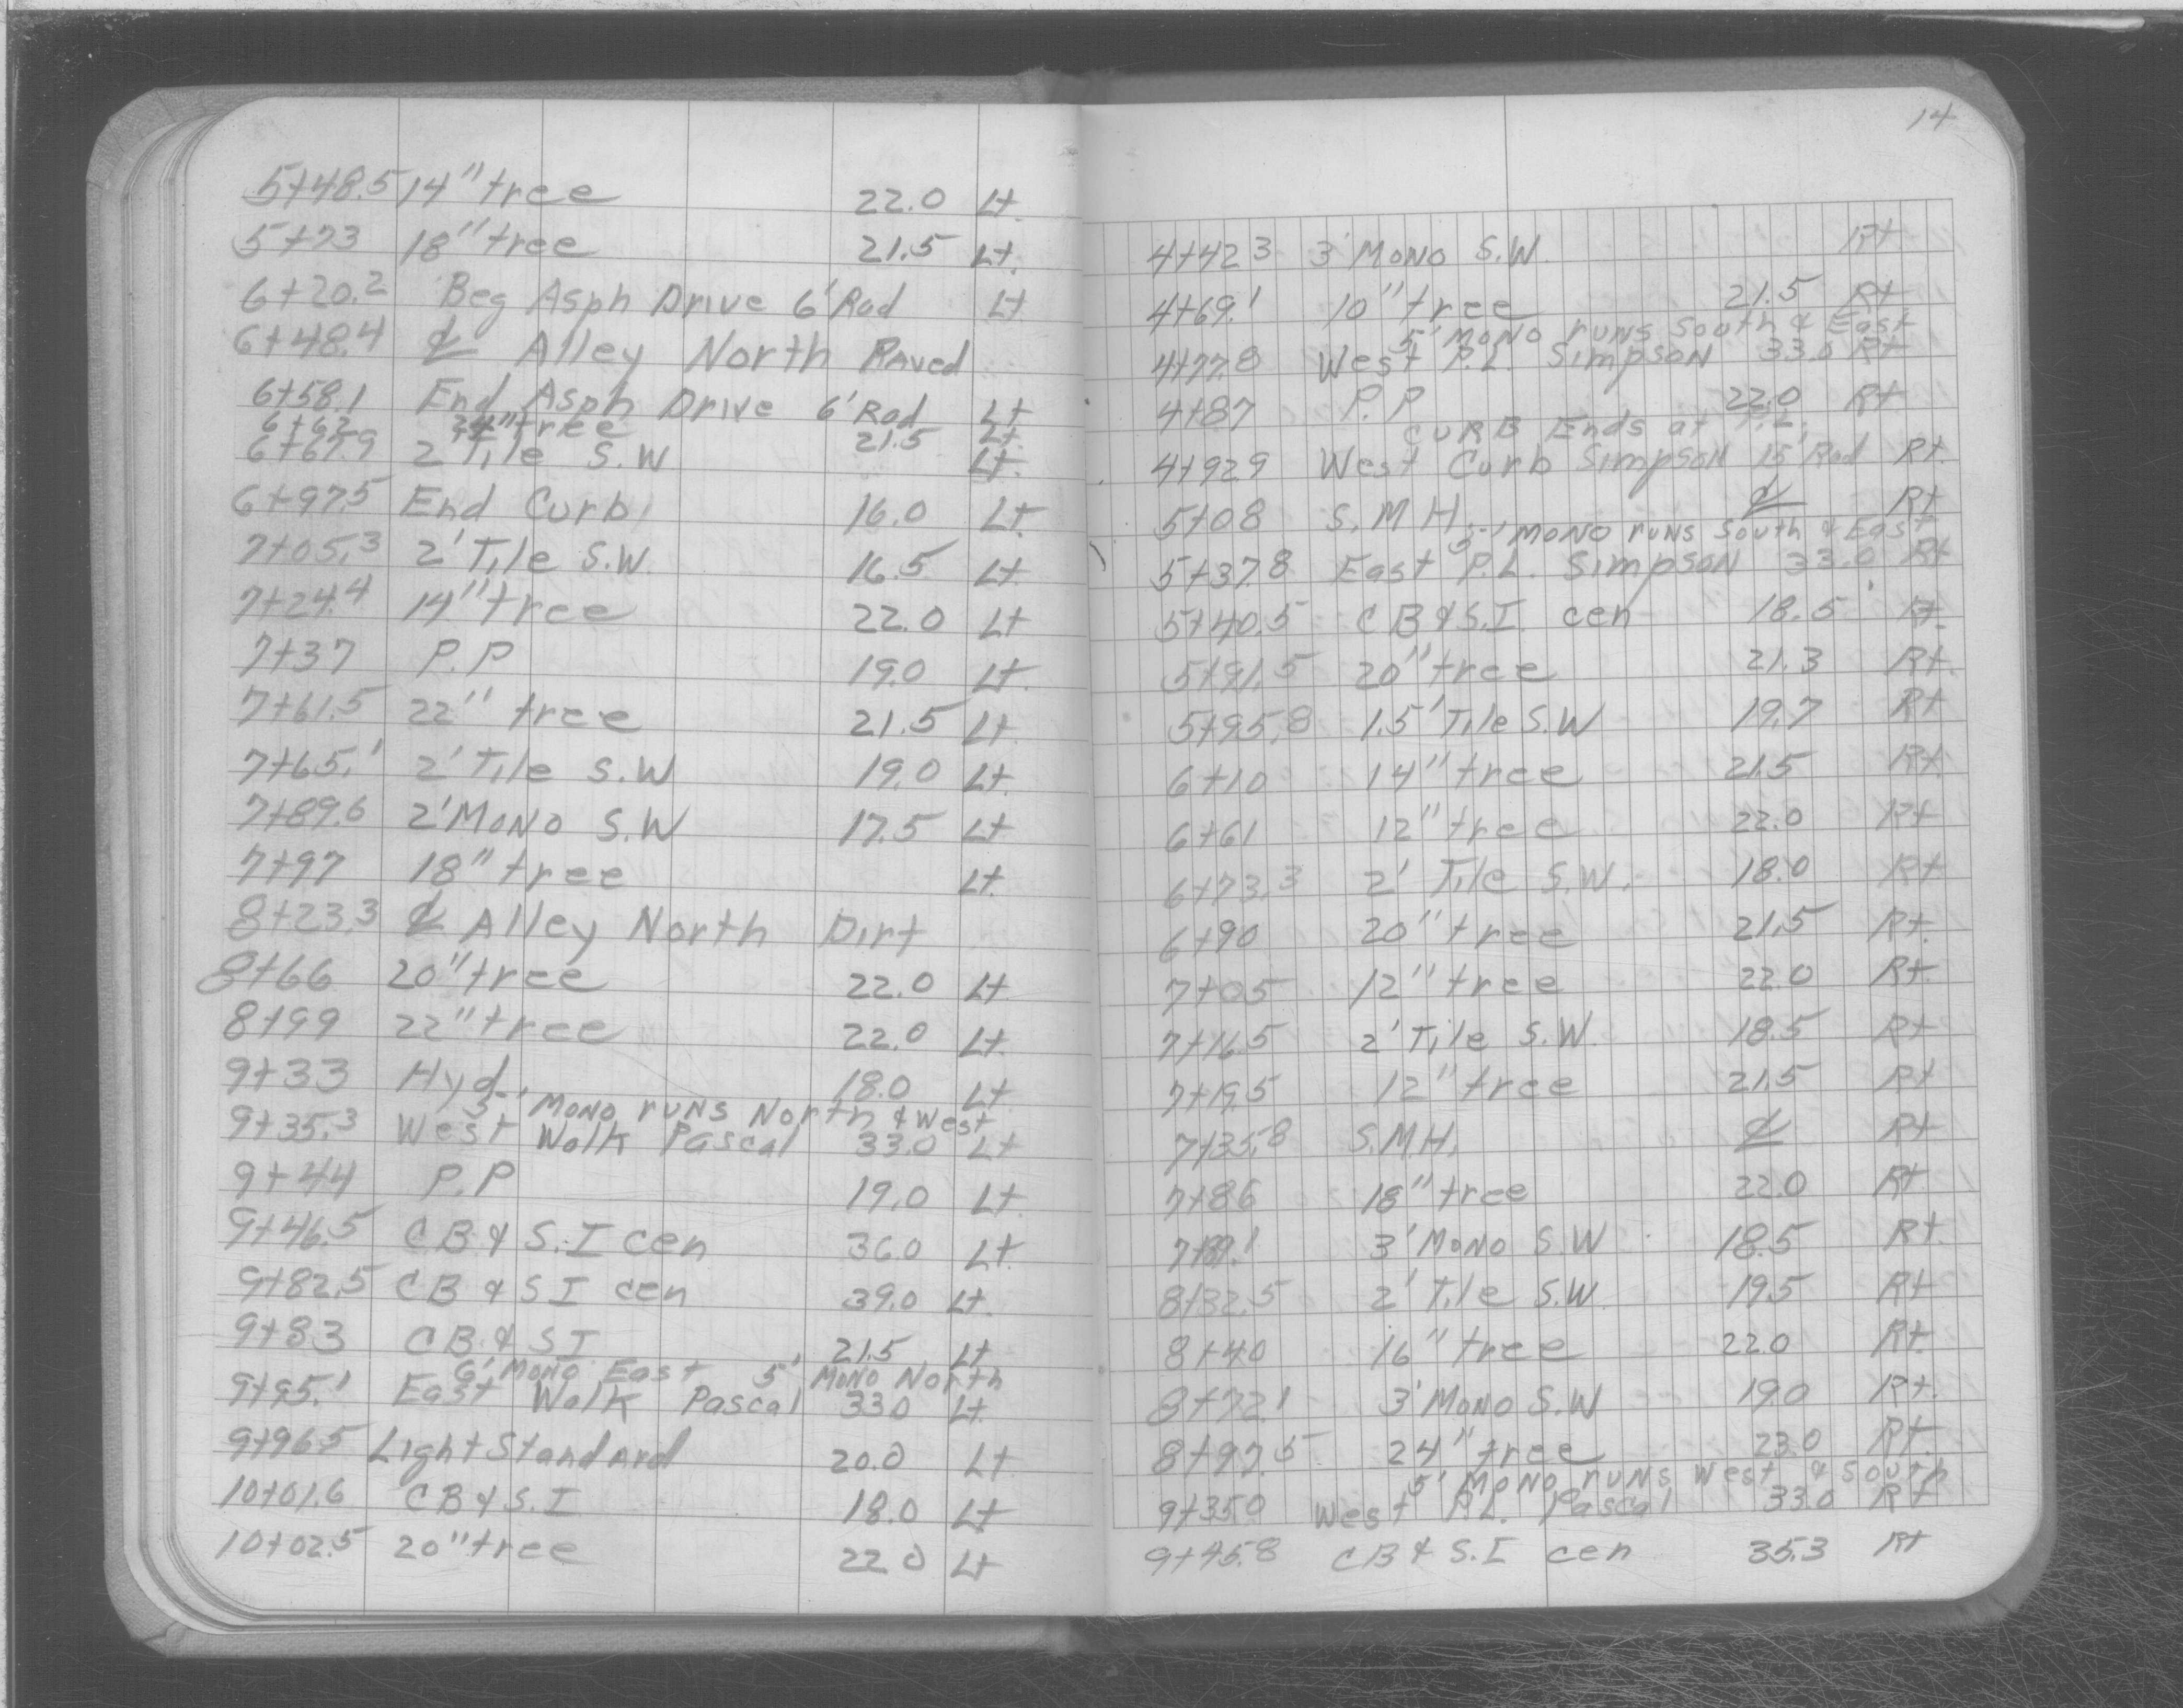 5+48.5 14" tree 22.0 Lt.
5+73 18" tree 21.5 Lt.
6+20.2 Beg Asph Drive 6' Rad Lt
6+48.4 ℄ Alley North Paved
6+58.1 End Asph Drive 6' Rad Lt
6+62 24" tree 21.5 Lt.
6+67.9 2' Tile S.W Lt.
6+97.5 End Curb 16.0 Lt.
7+05.3 2' Tile S.W. 16.5 Lt
7+24.4 14" tree 22.0 Lt
7+37 P.P 19.0 Lt.
7+61.5 22" tree 21.5 Lt
7+65.1 2' Tile S.W 19.0 Lt.
7+89.6 2' Mono S.W 17.5 Lt
7+97 18" tree Lt.
8+23.3 ℄ Alley North Dirt
8+66 20" tree 22.0 Lt
8+99 22" tree 22.0 Lt.
9+33 Hyd. 18.0 Lt
5' Mono runs North & West
9+35.3 West Walk Pascal 33.0 Lt
9+44 P.P 19.0 Lt.
9+46.5 CB & S.I cen 36.0 Lt.
9+82.5 CB & S I cen 39.0 Lt.
9+83 CB & S I 21.5 Lt
6' Mono East 5' Mono North
9+95.1 East Walk Pascal 33.0 Lt.
9+96.5 Light Standard 20.0 Lt
10+01.6 CB & S.I 18.0 Lt
10+02.5 20" tree 22.0 Lt
14
4+42.3 3' Mono S.W. Rt
4+69.1 10" tree 21.5 Rt
5' Mono runs South & East
4+77.8 West P.L. Simpson 33.0 Rt
4+87 P.P 22.0 Rt
Curb Ends at P.L.
4+92.9 West Curb Simpson 15' Rad Rt.
5+08 S.M H. ℄ Rt
5' Mono runs South & East
5+37.8 East P.L. Simpson 33.0 Rt
5+40.5 CB & S.I. cen 18.5 Rt.
5+91.5 20" tree 21.3 Rt.
5+95.8 1.5' Tile S.W 19.7 Rt
6+10 14" tree 21.5 Rt.
6+61 12" tree 22.0 Rt
6+73.3 2' Tile S.W. 18.0 Rt
6+90 20" tree 21.5 Rt.
7+05 12" tree 22.0 Rt.
7+16.5 2' Tile S.W. 18.5 Rt
7+19.5 12" tree 21.5 Rt
7+35.8 S.M.H. ℄ Rt
7+86 18" tree 22.0 Rt
7+89.1 3' Mono S.W 18.5 Rt.
8+32.5 2' Tile S.W. 19.5 Rt
8+40 16" tree 22.0 Rt.
8+72.1 3' Mono S.W 19.0 Rt.
8+97.5 24" tree 23.0 Rt.
5' Mono runs West & South
9+35.0 West P.L. Pascal 33.0 Rt
9+45.8 CB & S.I cen 35.3 Rt